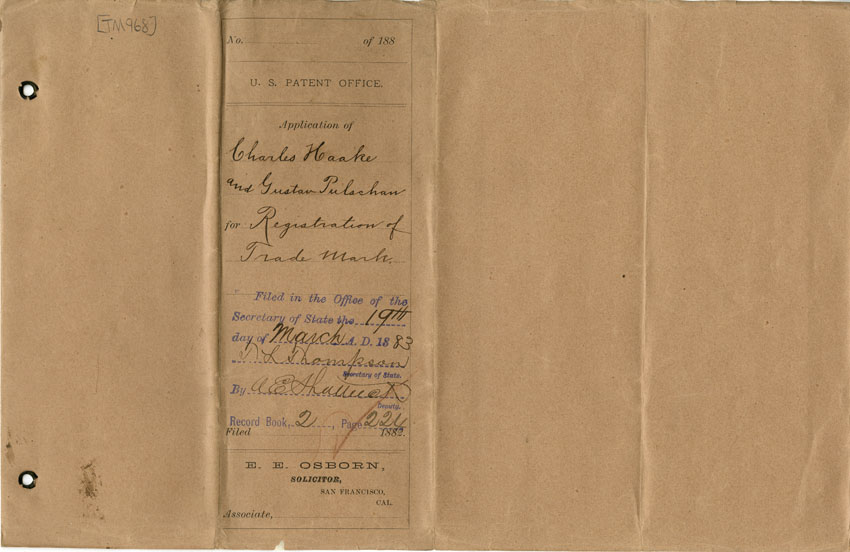 [TM968]
No. of 188
U. S. PATENT OFFICE.
Application of
Charles Haake
and Gustav Pulschan
for Registration of
Trade Mark.
Filed in the Office of the
Secretary of State the 19th
day of March A. D. 1883
Thompson
Secretary of State.
By
Deputy.
Record Book, 2, Page 224
Filed 1882.
E. E. OSBORN,
SOLICITOR,
SAN FRANCISCO,
CAL.
Associate,